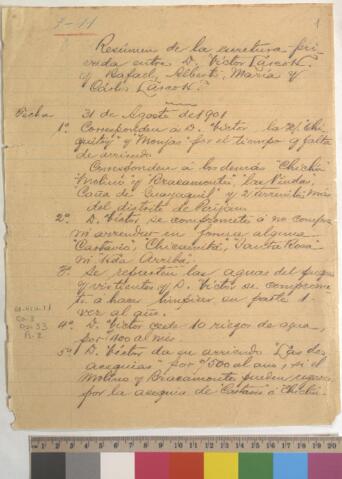 7-11
1
Resúmen de la escritura pri-
vada entre D. Victor Larco H.
y Rafael, Alberto, María y
Carlos Larco H.
Fecha 31 de Agosto de 1901
1º Corresponden á D. Victor la "Chi-
quitoy" y "Monjas" por el tiempo q. falta
de arriendo
Corresponden á los demás "Chiclin"
Molino y "Bracamonte", las Viudas,
Caña de Guayaquil y 2 terrenitos más
del distrito de Paijan.
2º D. Victor, se compromete á no compra
ni arrendar en forma alguna
"Cartavio", "Chicamita", Santa Rosa"
ni Toda Arriba.
3º Se reparten las aguas del
y vertientes y D. Victor se comprome
te a hacer limpiar su parte 1
vez al año.
4º D. Victor cede 10 riegos de agua,
por $400 al mes.
5º D. Victor da en arriendo "Las dos
acequias" por $500 al año, si el
Molino y Bracamonte pueden
por la acequia de Cartavio ó Chiclin.
Co. 3
Do. 33